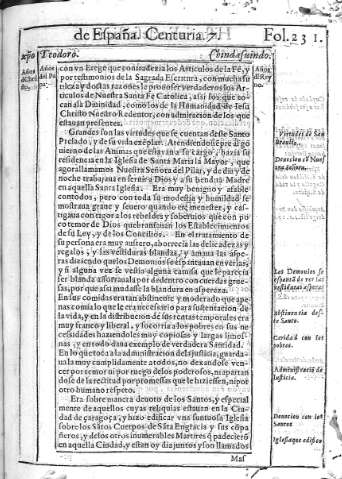 de España. Centuria. 7. Fol. 231.
xpõ Teodoro. Chindasuindo.
con vn Erege que contradezia los Articulos de la Fè, y
por testimonios de la Sagrada Escritura, con mucha su
tileza y doctas razones le prouò ser verdaderos los Ar
ticulos de Nuestra Santa Fè Catolica, assi los que to-
can a la Diuinidad, como los de la Humanidad de Iesu
Christo Nuestro Redentor, con admiracion de los que
estauan presentes.
Grandes son las virtudes que se cuentan deste Santo
Prelado, y de su vida exemplar. Atendiendo
de las Animas que estauan a su cargo, hazia su
residencia en la Iglesia de Santa Maria la Mayor, que
agora llamamos Nuestra Señora del Pilar, y de dia y de
noche trabajaua en seruir a Dios y a su bendita Madre
en aquella Santa Iglesia. Era muy benigno y afable
con todos, pero con toda su modestia y humildad se
mostraua graue y seuero quando era menester, y cas-
tigaua con rigor a los rebeldes y soberuios que con po
co temor de Dios quebrantauan los Establecimientos
de su Ley, y de los Concilios. En el tratamiento de
su persona era muy austero, aborrecia las delicadezas y
regalos, y las vestiduras blandas, y amaua las aspe-
ras diziendo que los Demonios se espantauan en verlas,
y si alguna vez se vestia alguna camisa que le parecia
ser blanda assomaua la por de dentro con cuerdas grue-
sas, por que assi mudasse la blandura en aspereza.
En sus comidas era tan abstinente y moderado que ape
nas comia lo que le era necessario para sustentacion de
la vida, y en la distribucion de sus rentas temporales era
muy franco y liberal, y socorria los pobres en sus ne
cessidades haziendoles muy copiosas y largas limos
nas, y en todo daua exemplo de verdadera Santidad.
En lo que toca a la administracion de la justicia, guarda-
ua la muy cumplidamente a todos, no dexandose ven-
cer por temor ni por ruego de los poderosos, ni apartan
dose de la rectitud por promessas que le hiziessen, ni por
otro humano respeto.
Era sobre manera deuoto de los Santos, y especial
mente de aquellos cuyas reliquias estauan en la Ciu-
dad de çaragoça, y hizo edificar vna suntuosa Iglesia
sobre los Sãtos Cuerpos de Sãta Engracia y sus cõpa
ñeros, y de los otros innumerables Martires q̃ padecierõ
en aquella Ciudad, y estan oy dia juntos y son llamados
Mas
Años
Años
de Rey
no.
Virtudes de San
Braulio.
Deuocion cõ Nues
tra señora.
Los Demonios se
espantã de ver las
vestiduras asperas
Abstinencia des-
te Santo.
Caridad con los
pobres.
Administraciõ de
justicia.
Deuocion con
los Santos
Iglesia q̃ edifico